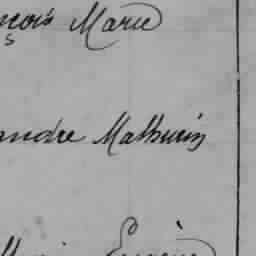 nçois Marie
andre Mathurin
Eugène